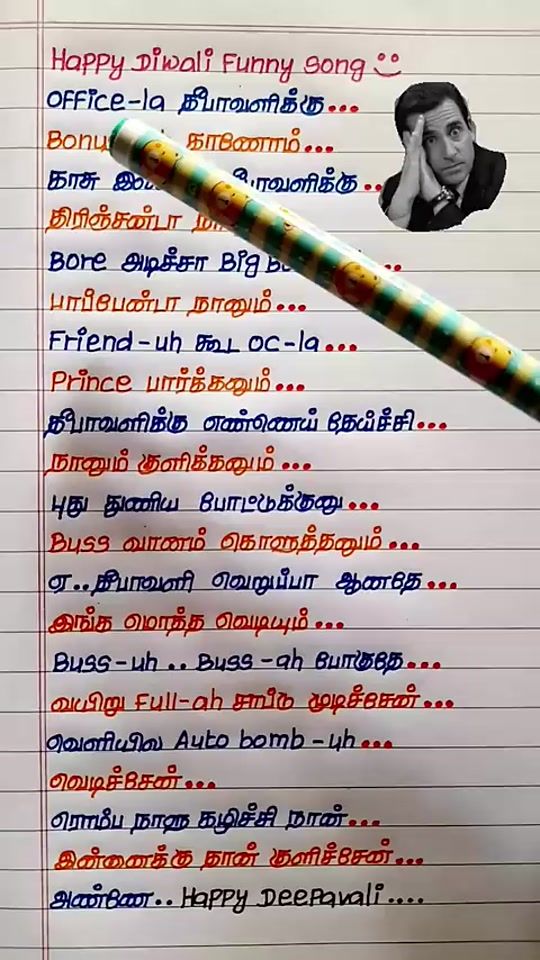 Happy Diwali Funny song
Office-la தீபாவளிக்கு...
காணோம்...
காசு தீபாவளிக்கு...
திரிஞ்சன்டா
Bore அடிச்சா Big
பார்ப்பேன்டா நானும்...
Friend-uh கூட OC-la...
Prince பார்க்கனும்...
தீபாவளிக்கு எண்ணெய் தேய்ச்சி...
நானும் குளிக்கனும்...
புது துணிய போட்டுக்குனு...
Buss வானம் கொளுத்தனும்...
ஏ..தீபாவளி வெறுப்பா ஆனதே...
இங்க மொத்த வெடியும்...
Buss-uh .. Buss-ah போகுதே...
வயிறு Full-ah சாப்டு முடிச்சேன்...
வெளியில Auto bomb-uh...
வெடிச்சேன்...
ரொம்ப நாளு கழிச்சி நான்...
இன்னைக்கு தான் குளிச்சேன்...
அண்ணே.. Happy Deepavali....